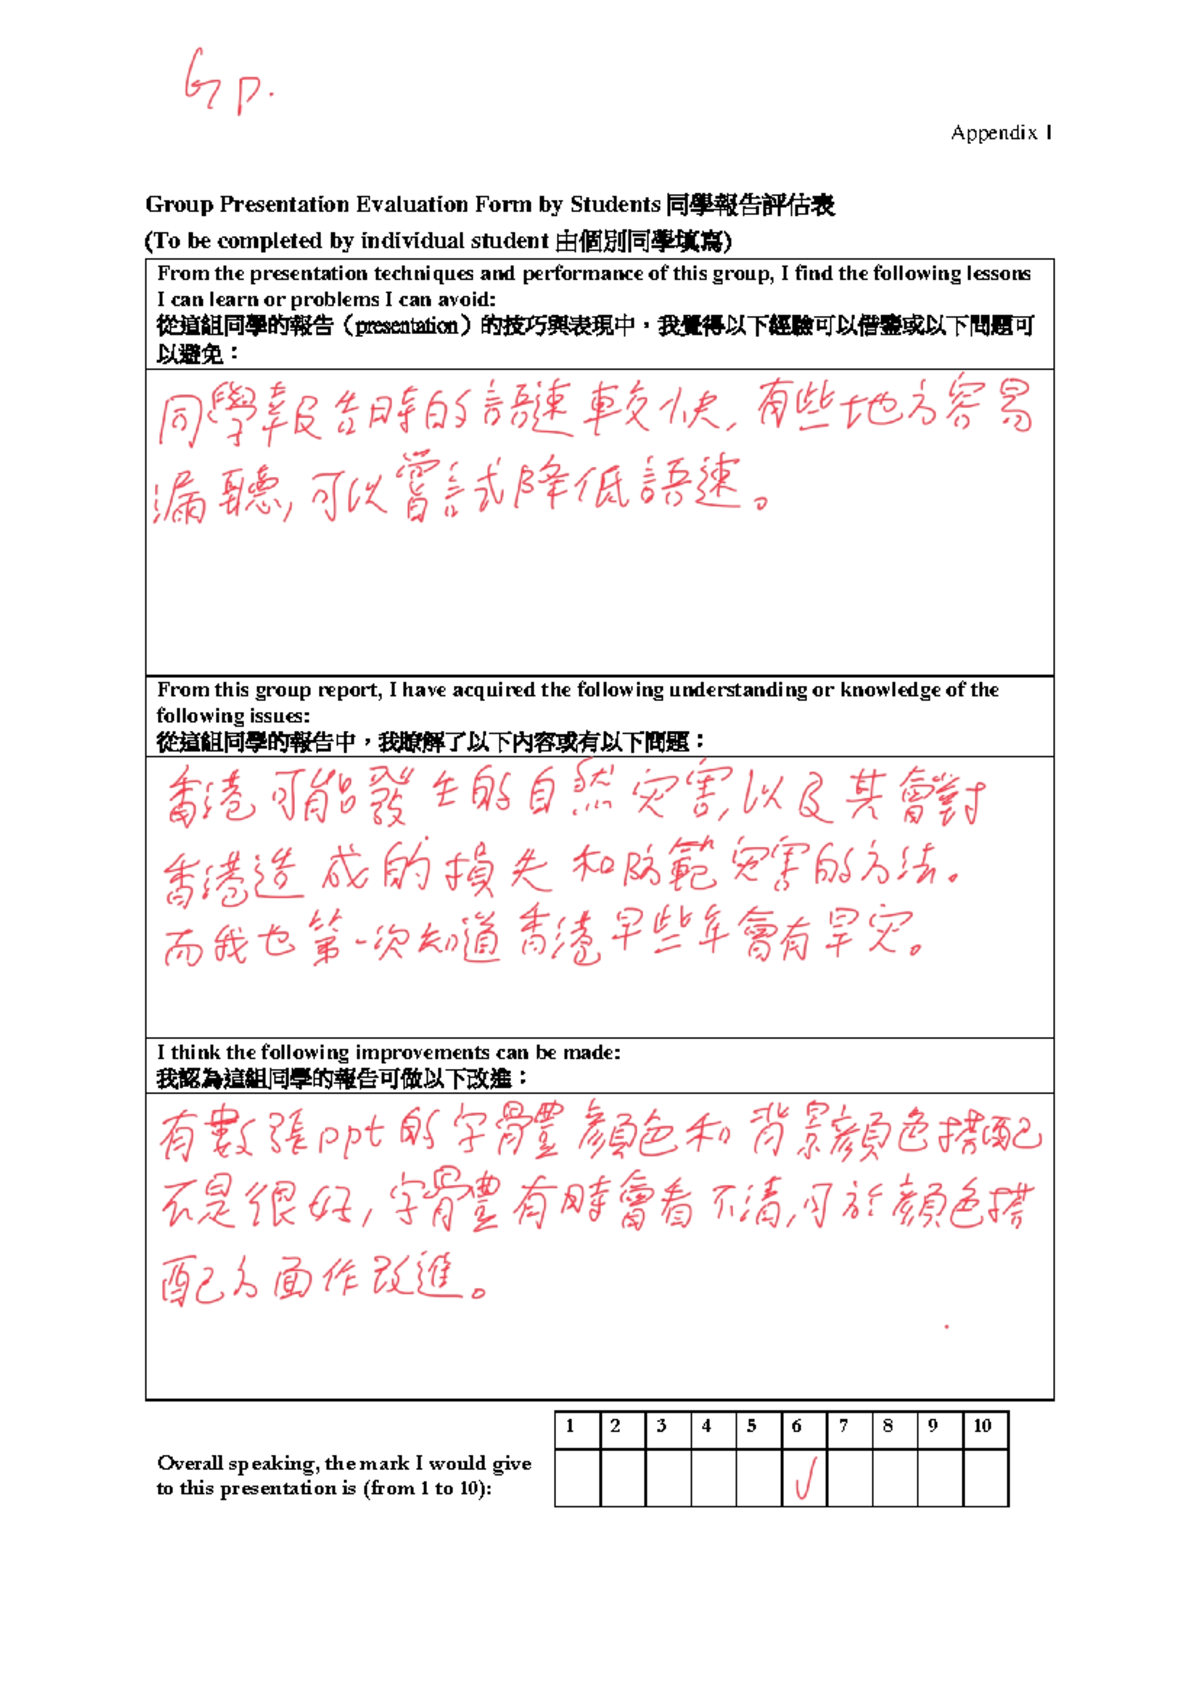 Gp.
Appendix 1
Group Presentation Evaluation Form by Students 同學報告評估表
(To be completed by individual student 由個別同學填寫)
From the presentation techniques and performance of this group, I find the following lessons
I can learn or problems I can avoid:
從這組同學的報告（presentation）的技巧與表現中，我覺得以下經驗可以借鑒或以下問題可
以避免：
同學報告時的語速較快,有些地方容易
漏聽,可以嘗試降低語速。
From this group report, I have acquired the following understanding or knowledge of the
following issues:
從這組同學的報告中，我瞭解了以下內容或有以下問題：
香港可能發生的自然災害,以及其會對
香港造成的損失和防範災害的方法。
而我也第一次知道香港早些年會有旱災。
I think the following improvements can be made:
我認為這組同學的報告可做以下改進：
有數張ppt的字體顏色和背景顏色搭配
不是很好,字體有時會看不清,可於顏色搭
配方面作改進。
1 2 3 4 5 6 7 8 9 10
Overall speaking, the mark I would give
to this presentation is (from 1 to 10):